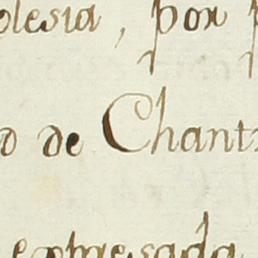 olesia, por p
o de Chantr
expresada